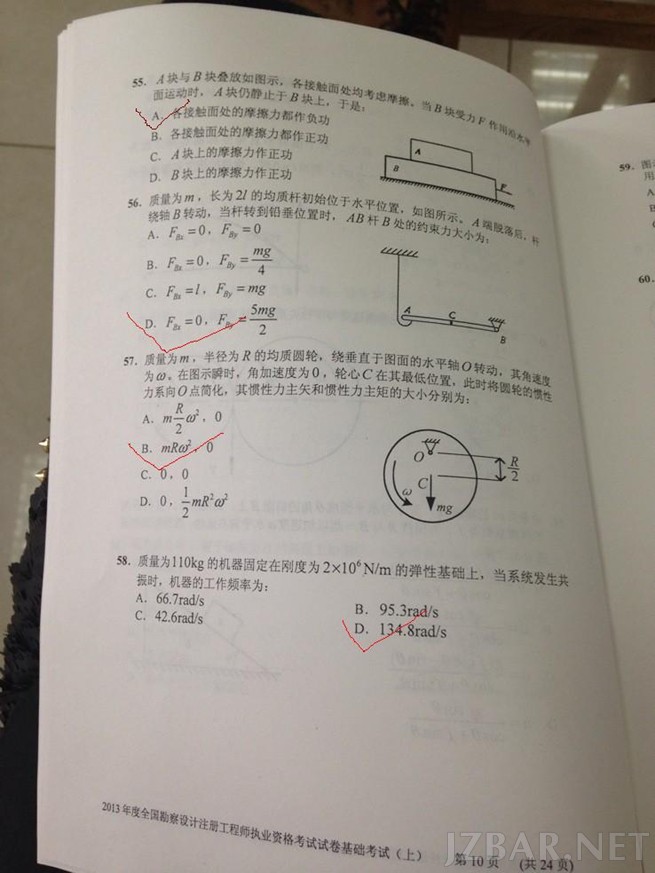 55. A块与B块叠放如图示，各接触面处均考虑摩擦。当B块受力F作用沿水平
面运动时，A块仍静止于B块上，于是：
A. 各接触面处的摩擦力都作负功
B. 各接触面处的摩擦力都作正功
C. A块上的摩擦力作正功
D. B块上的摩擦力作正功
A
B
F
56. 质量为m，长为2l的均质杆初始位于水平位置，如图所示，A端脱落后，杆
绕轴B转动，当杆转到铅垂位置时，AB杆B处的约束力大小为：
A. F_Bx=0，F_By=0
B. F_Bx=0，F_By=mg/4
C. F_Bx=l，F_By=mg
D. F_Bx=0，F_By=5mg/2
A
C
B
57. 质量为m，半径为R的均质圆轮，绕垂直于图面的水平轴O转动，其角速度
为ω。在图示瞬时，角加速度为0，轮心C在其最低位置，此时将圆轮的惯性
力系向O点简化，其惯性力主矢和惯性力主矩的大小分别为：
A. m(R/2)ω²，0
B. mRω²，0
C. 0，0
D. 0，(1/2)mR²ω²
O
C
ω
mg
R/2
58. 质量为110kg的机器固定在刚度为2×10⁶N/m的弹性基础上，当系统发生共
振时，机器的工作频率为：
A. 66.7rad/s
B. 95.3rad/s
C. 42.6rad/s
D. 134.8rad/s
2013年度全国勘察设计注册工程师执业资格考试试卷基础考试（上） 第10页 （共24页）
59. 图
用
A
B
60.
JZBAR.NET